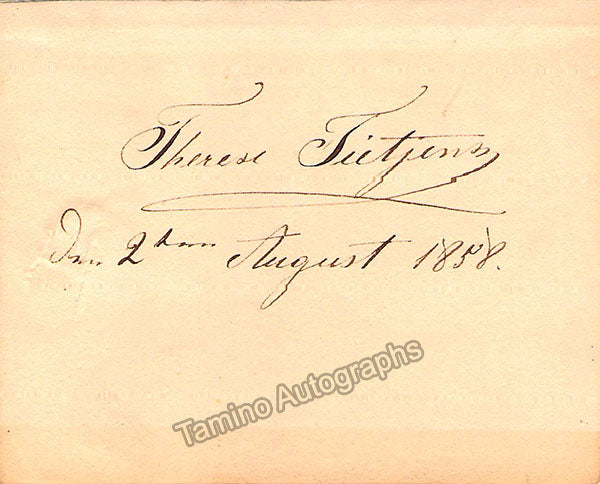 Therese Tietjens
Den 2ten August 1858.
Tamino Autographs